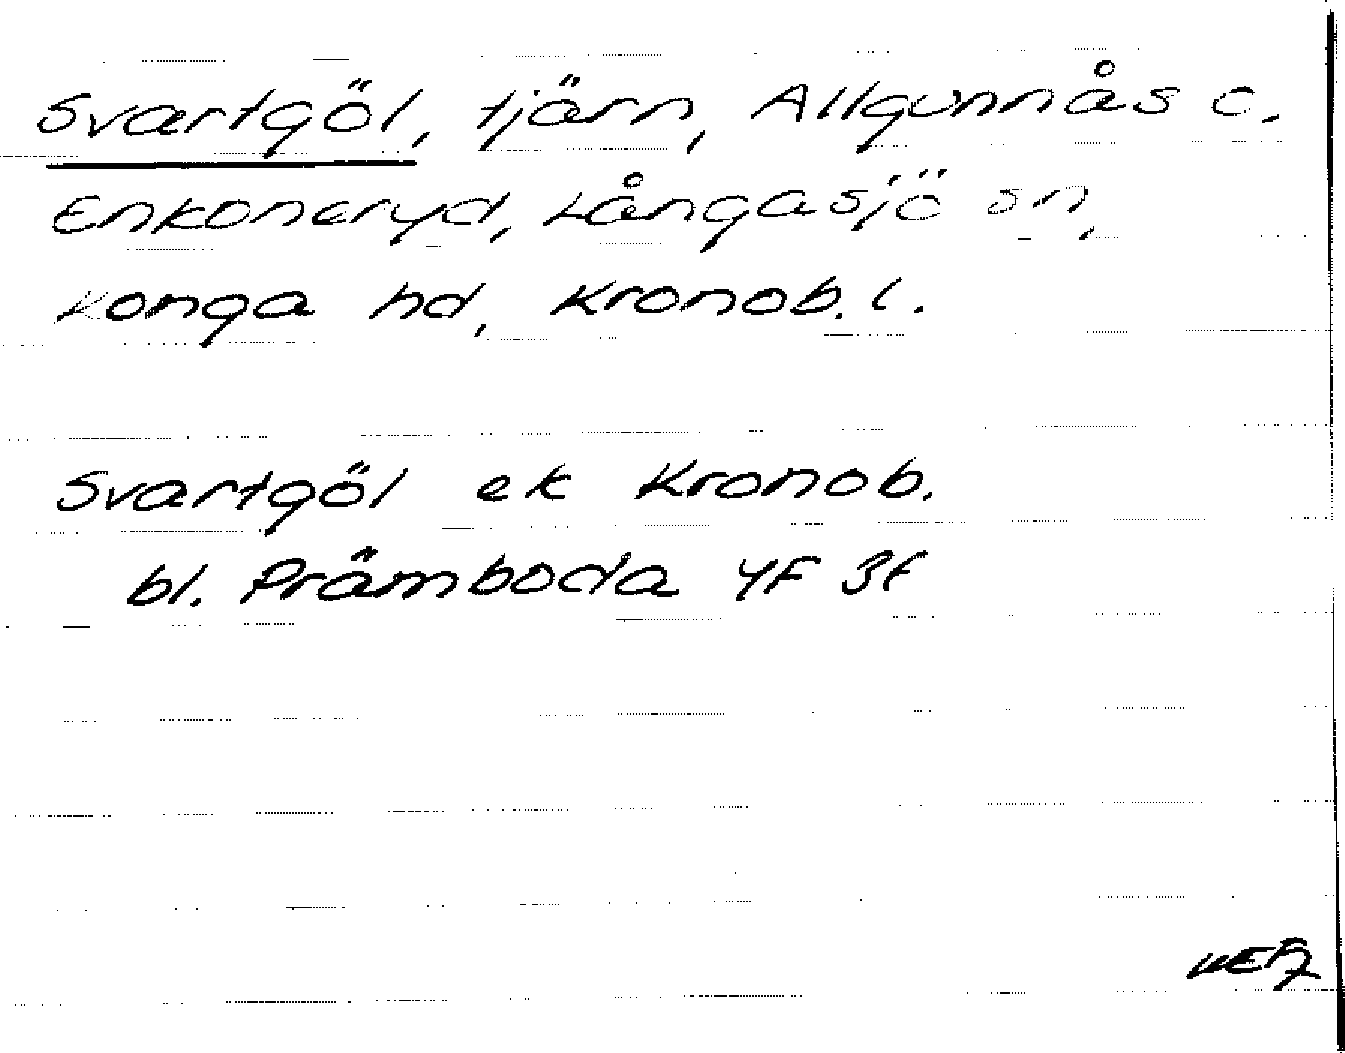 Svartgöl, tjärn, Allgunnås o.
Enkoneryd, Långasjö sn,
Konga hd, Kronob. l.
Svartgöl ek Kronob.
bl. Prämboda 4F 3f